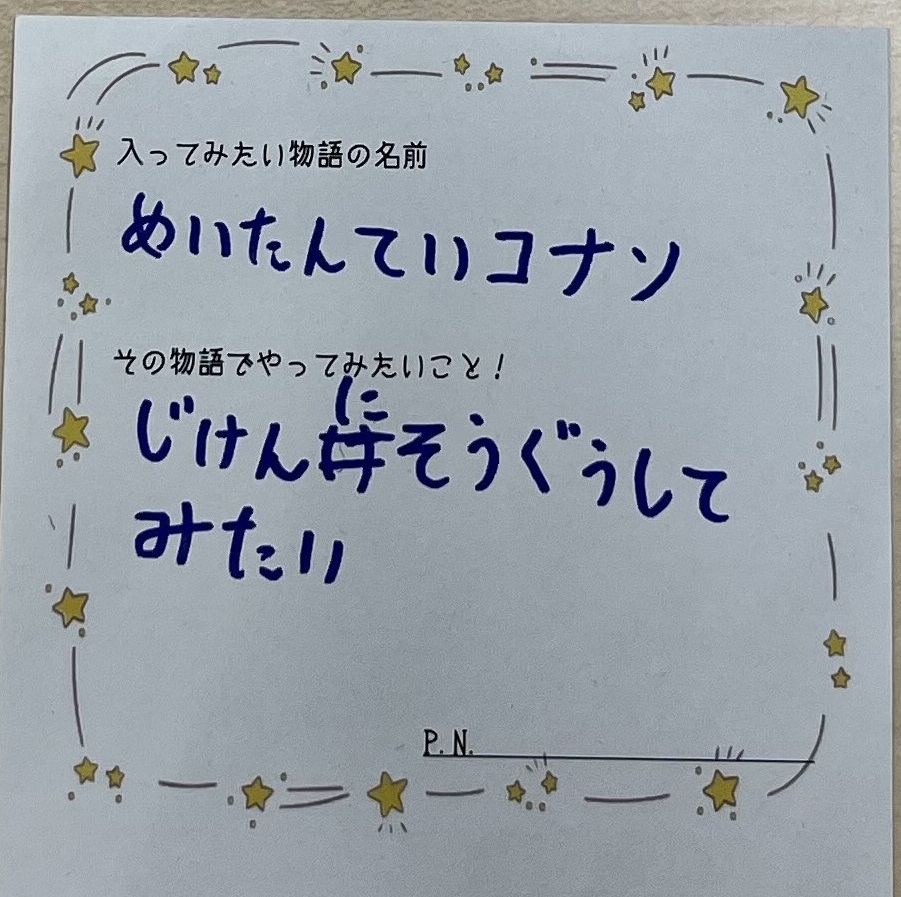 入ってみたい物語の名前
めいたんていコナン
その物語でやってみたいこと！
じけんにそうぐうして
みたい
P.N.